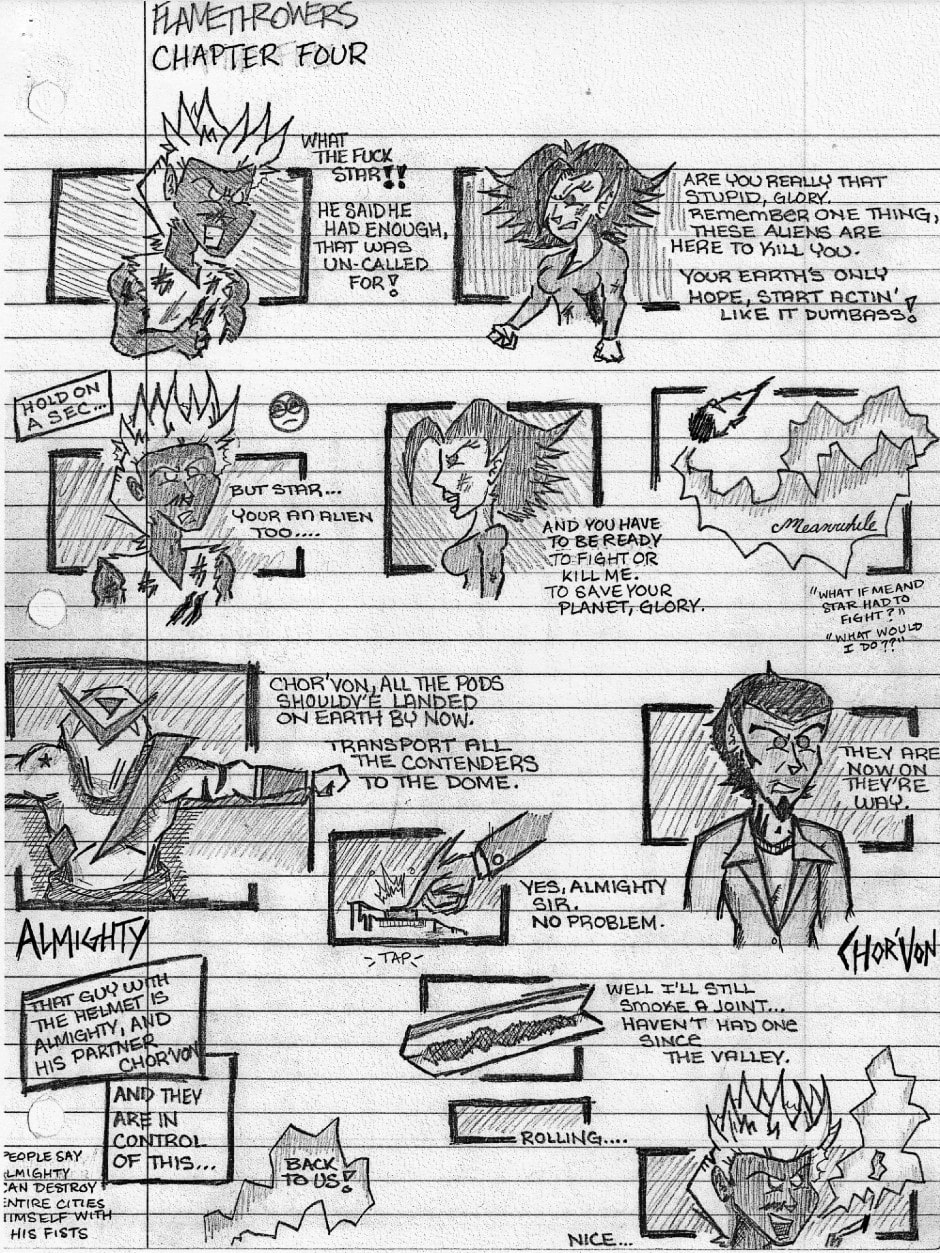 FLAMETHROWERS
CHAPTER FOUR
WHAT
THE FUCK
STAR!!
HE SAID HE
HAD ENOUGH,
THAT WAS
UN-CALLED
FOR!
ARE YOU REALLY THAT
STUPID, GLORY.
REMEMBER ONE THING,
THESE ALIENS ARE
HERE TO KILL YOU.
YOUR EARTH'S ONLY
HOPE, START ACTIN'
LIKE IT DUMBASS!
HOLD ON
A SEC...
BUT STAR...
YOUR AN ALIEN
TOO....
AND YOU HAVE
TO BE READY
TO FIGHT OR
KILL ME.
TO SAVE YOUR
PLANET, GLORY.
Meanwhile
"WHAT IF ME AND
STAR HAD TO
FIGHT?"
"WHAT WOULD
I DO??"
CHOR'VON, ALL THE PODS
SHOULDV'E LANDED
ON EARTH BY NOW.
TRANSPORT ALL
THE CONTENDERS
TO THE DOME.
ALMIGHTY
TAP
YES, ALMIGHTY
SIR.
NO PROBLEM.
THEY ARE
NOW ON
THEY'RE
WAY.
CHOR'VON
THAT GUY WITH
THE HELMET IS
ALMIGHTY, AND
HIS PARTNER
CHOR'VON
AND THEY
ARE IN
CONTROL
OF THIS...
PEOPLE SAY
ALMIGHTY
CAN DESTROY
ENTIRE CITIES
HIMSELF WITH
HIS FISTS
BACK
TO US!
WELL I'LL STILL
SMOKE A JOINT...
HAVEN'T HAD ONE
SINCE
THE VALLEY.
ROLLING....
NICE...